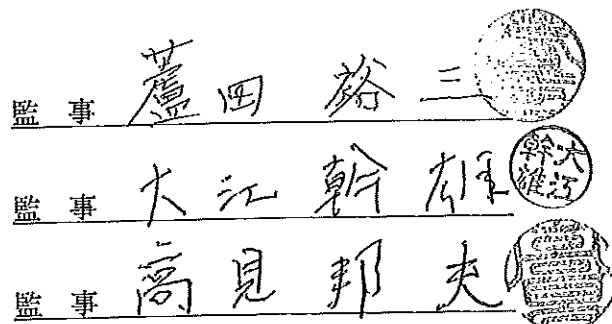 監事 蘆田 裕三
監事 大江 幹雄 大江幹雄
監事 高見 邦夫